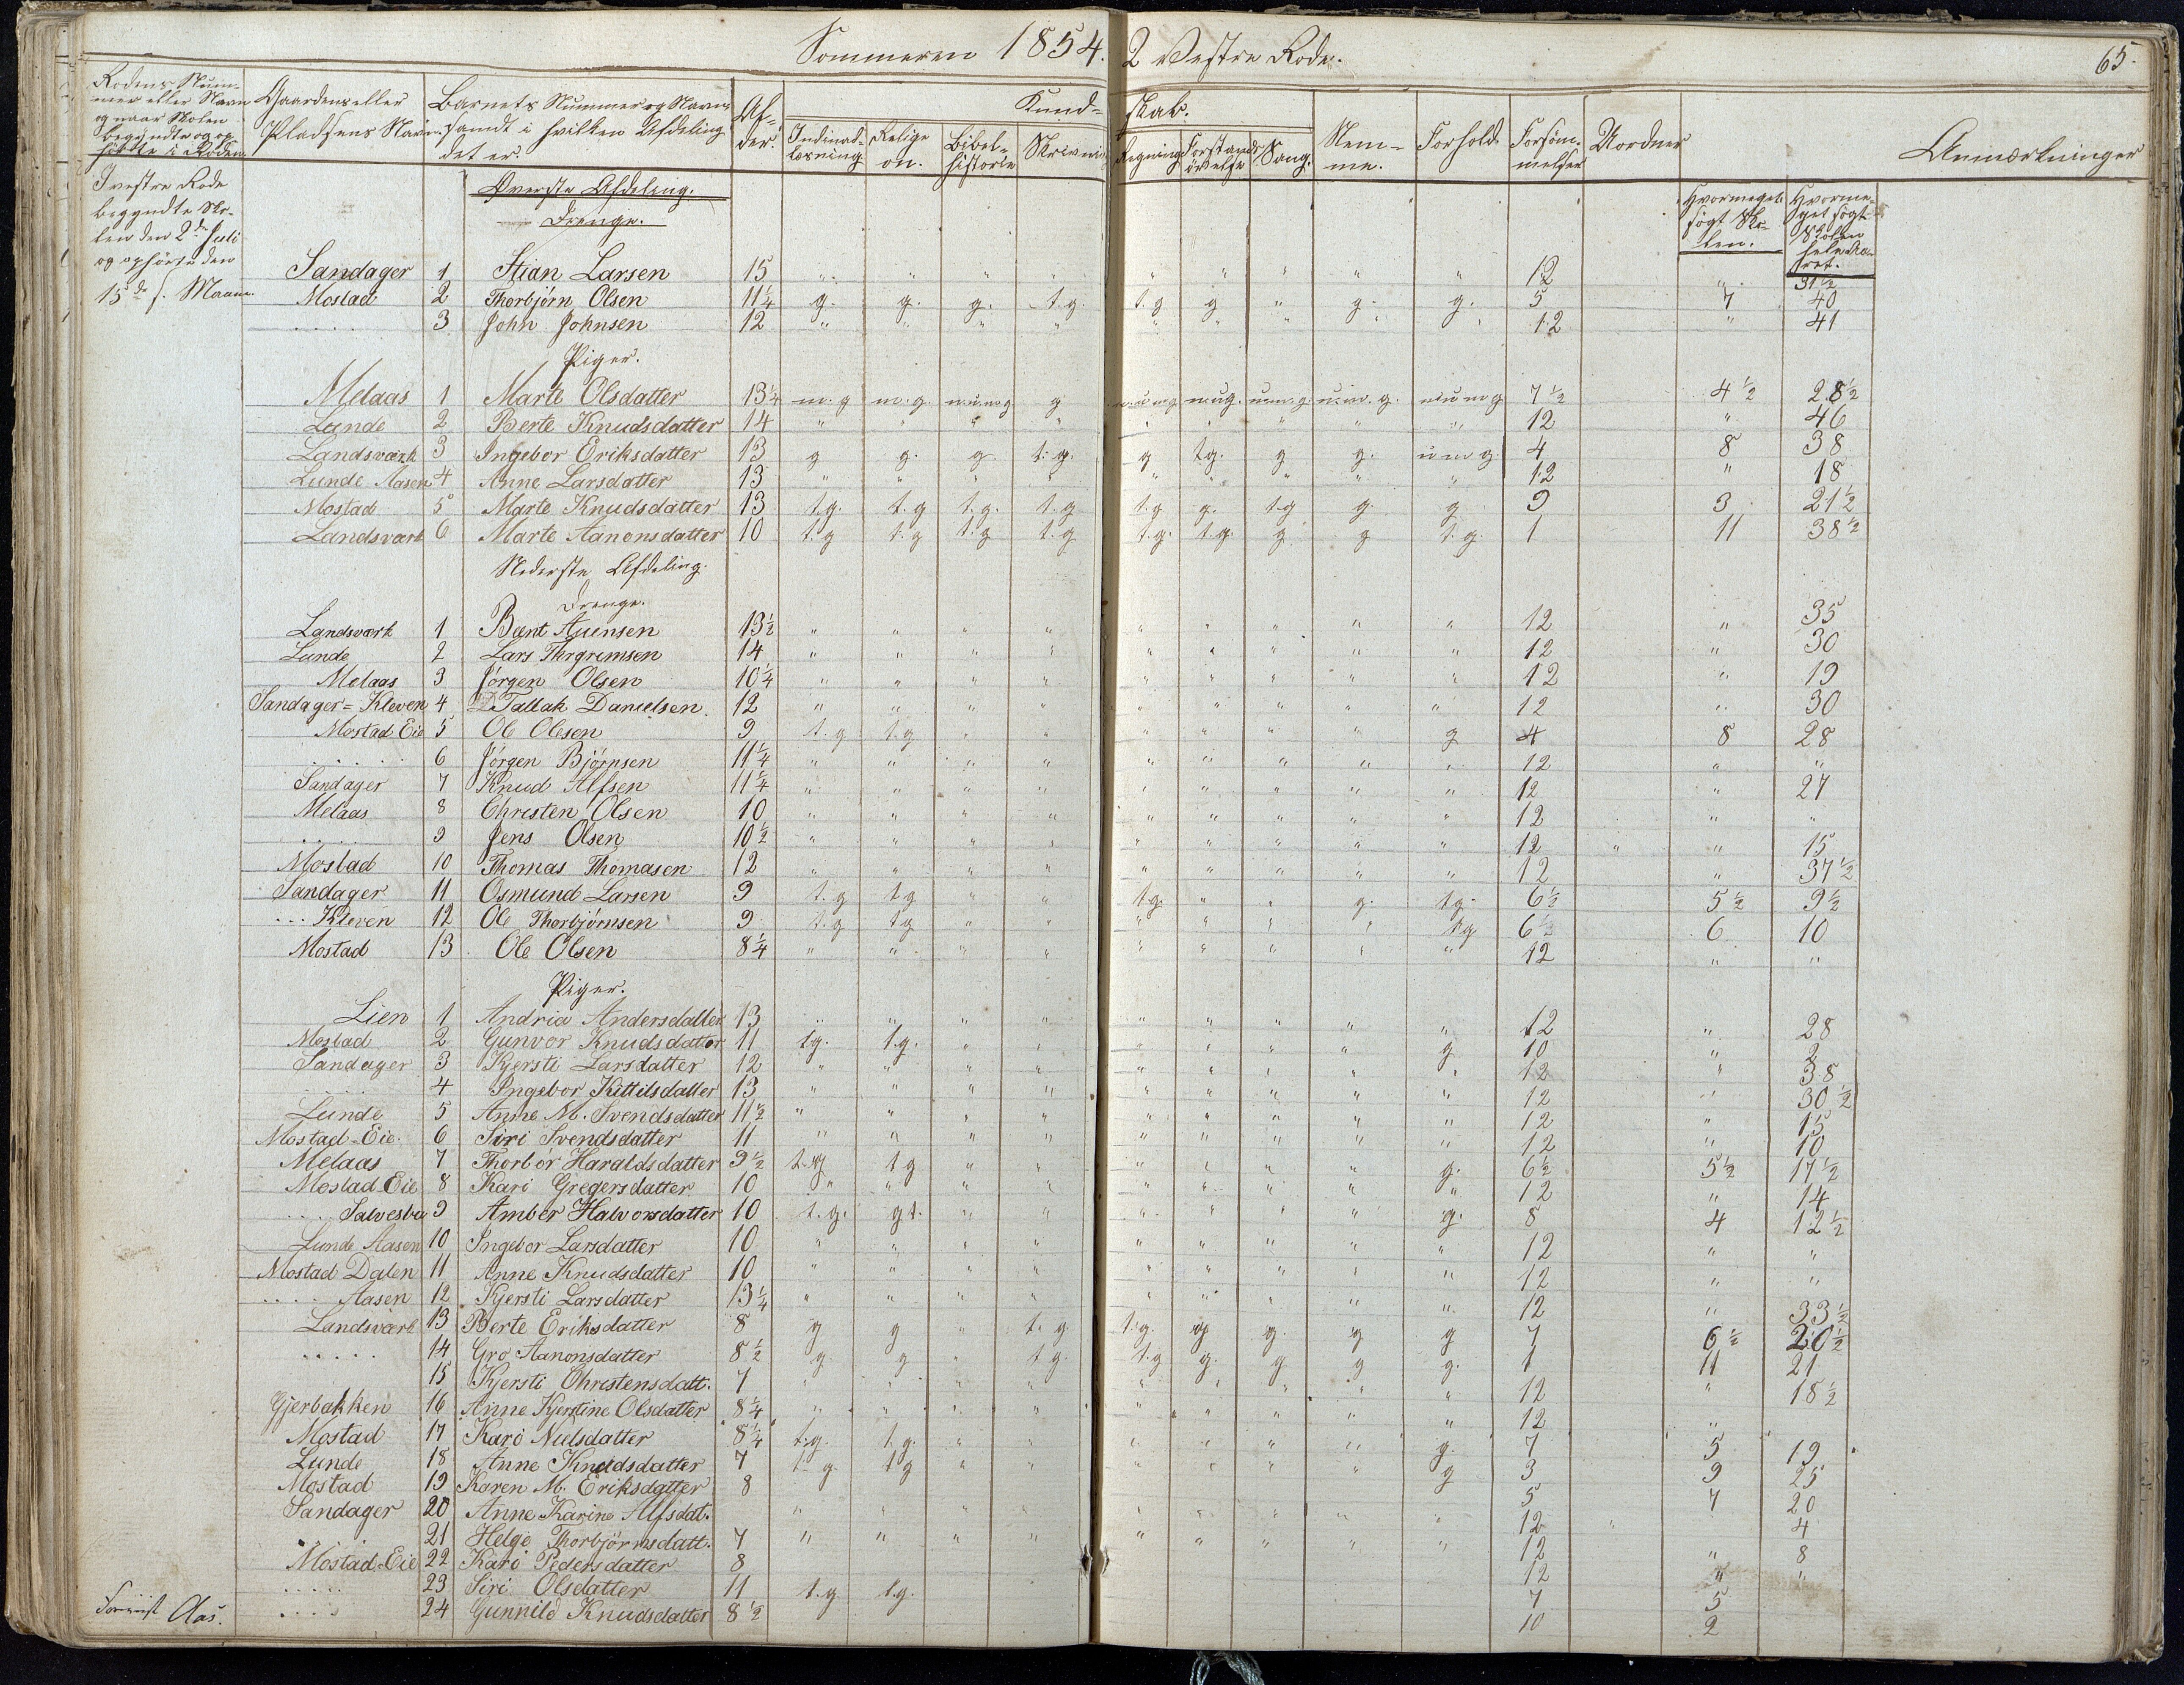 Sommeren 1854. 2 Vestre Rode. 65.
Rodens Num-
mer eller Navn
og naar Skolen
begyndte og op-
hørte i Roden.
Gaardens eller
Pladsens Navn.
Barnets Nummer og Navn
samt i hvilken Afdeling
det er.
Al-
der.
Kund- skab.
Indenad-
læsning
Religi-
on.
Bibel-
historie
Skrivning
Regning
Forstands-
øvelse
Sang.
Nem-
me.
Forhold.
Forsøm-
melser
Uordner
Anmærkninger
I vestre Rode
begyndte Sko-
len den 2de Juli
og ophørte den
15de s. Maane.
Hvormeget
søgt Sko-
len.
Hvorme-
get søgt
Skolen
hele Aa-
ret.
Øverste Afdeling.
Drenge.
Sandager 1 Stian Larsen 15 " " " " " " " " " 12 " 31 1/2
Mostad 2 Thorbjørn Olsen 11 1/4 g. g. g. t.g. t.g g " g. g. 5 7 40
.... 3 John Johnsen 12 " " " " " " " " " 12 " 41
Piger.
Melaas 1 Marte Olsdatter 13 1/4 m.g m.g. m.u.m.g g m.u.m.g m.u.g. u.m.g. u.m.g. m.u.m.g 7 1/2 4 1/2 28 1/2
Lunde 2 Berte Knudsdatter 14 " " " " " " " " " 12 " 46
Landsværk 3 Ingebor Eriksdatter 13 g g. g. t.g. g t.g. g g. u m g. 4 8 38
Lunde Aasen 4 Anne Larsdatter 13 " " " " " " " " " 12 " 18
Mostad 5 Marte Knudsdatter 13 t.g. t.g t.g. t.g t.g g. t.g g. g 9 3 21 1/2
Landsvært 6 Marte Aanonsdatter 10 t.g t.g t.g t.g t.g. t.g. g g t.g. 1 11 38 1/2
Nederste Afdeling.
Drenge.
Landsvært 1 Bent Auensen 13 1/2 " " " " " " " " " 12 " 35
Lunde 2 Lars Thrgrimsen 14 " " " " " " " " " 12 " 30
Melaas 3 Jørgen Olsen 10 1/4 " " " " " " " " " 12 " 19
Sandager=Kleven 4 Tallak Danielsen 12 " " " " " " " " " 12 " 30
Mostad Eie 5 Ole Olesen 9 t.g t.g " " " " " " g 4 8 28
...... 6 Jørgen Bjørnsen 11 1/4 " " " " " " " " " 12 " "
Sandager 7 Knud Alfsen 11 1/4 " " " " " " " " " 12 " 27
Melaas 8 Christen Olsen 10 " " " " " " " " " 12 " "
.... 9 Jens Olsen 10 1/2 " " " " " " " " " 12 " " 15
Mostad 10 Thomas Thomasen 12 " " " " " " " " " 12 " 37 1/2
Sandager 11 Osmund Larsen 9 t.g t.g " " t.g. " " g. t.g. 6 1/2 5 1/2 9 1/2
... Kleven 12 Ole Thorbjørnsen 9 t.g t.g " " " " " " t.g 6 1/2 6 10
Mostad 13 Ole Olsen 8 1/4 " " " " " " " " " 12 " "
Piger.
Lien 1 Andria Andersdatter 13 " " " " " " " " " 12 " 28
Mostad 2 Gunvor Knudsdatter 11 t.g. t.g. " " " " " " g 10 " 2
Sandager 3 Kjersti Larsdatter 12 " " " " " " " " " 12 " 38
.... 4 Ingebor Kittilsdatter 13 " " " " " " " " " 12 " 30 1/2
Lunde 5 Anne M. Svendsdatter 11 1/2 " " " " " " " " " 12 " 15
Mostad-Eie. 6 Siri Svendsdatter 11 " " " " " " " " " 12 " 10
Melaas 7 Thorbør Haraldsdatter 9 1/2 t.g t g " " " " " " g. 6 1/2 5 1/2 17 1/2
Mostad-Eie 8 Kari Gregersdatter 10 " " " " " " " " " 12 " 14
.... Salvesbu 9 Amber Halvorsdatter 10 t.g. g t. " " " " " " g. 8 4 12 1/2
Lunde Aasen 10 Ingebor Larsdatter 10 " " " " " " " " " 12 " "
Mostad Dalen 11 Anne Knudsdatter 10 " " " " " " " " " 12 " "
.... Aasen 12 Kjersti Larsdatter 13 1/4 " " " " " " " " " 12 " 33 1/2
Landsvært 13 Berte Eriksdatter 8 g g " t.g t.g. g g. g g 7 6 1/2 20 1/2
..... 14 Gro Aanonsdatter 8 1/2 g. g " t.g. t.g g. g g g. 1 11 21
15 Kjersti Christensdatt. 7 " " " " " " " " " 12 " 18 1/2
Gjerbakken 16 Anne Kjerstine Olsdatter 8 1/4 " " " " " " " " " 12 "
Mostad 17 Kari Nielsdatter 8 1/4 t.g. t.g. " " " " " " g. 7 5 19
Lunde 18 Anne Knudsdatter 7 t.g. t g " " " " " " g 3 9 25
Mostad 19 Karen M. Eriksdatter 8 5 7 20
Sandager 20 Anne Karine Alfsdat. " " " " " " " " " 12 4
.... 21 Helge Thorbjørnsdatt. 7 " " " " " " " " 12 " 8
Mostad-Eie 22 Kari Pedersdatter 8 12 " "
..... 23 Siri Olsdatter 11 t.g t.g. 7 5
.... 24 Gunnild Knudsdatter 8 1/2 10 2
Aas.